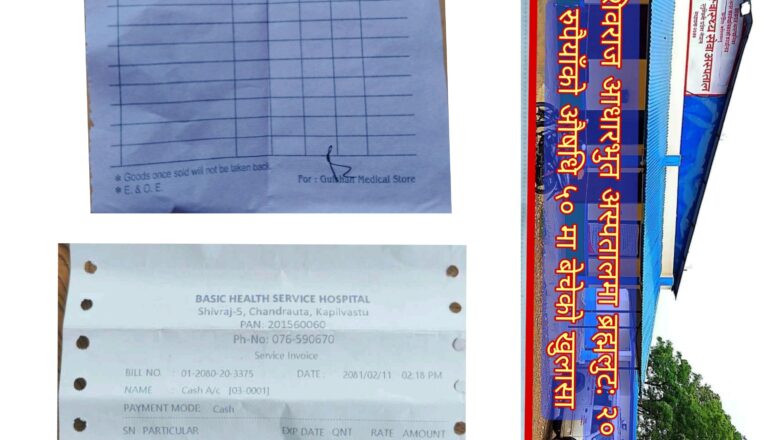 * Goods once sold will not be taken back.
* E. & O. E.
For : Gulshan Medical Store
BASIC HEALTH SERVICE HOSPITAL
Shivraj-5, Chandrauta, Kapilvastu
PAN: 201560060
Ph-No: 076-590670
Service Invoice
BILL NO. : 01-2080-20-3375 DATE : 2081/02/11 02:18 PM
NAME : Cash A/c [03-0001]
PAYMENT MODE: Cash
SN PARTICULAR EXP DATE QNT RATE AMOUNT
शिवराज आधारभुत अस्पतालमा ब्रह्मलुटः २०
रुपैयाँको औषधि ५० मा बेचेको खुलासा
स्वास्थ्य सेवा अस्पताल